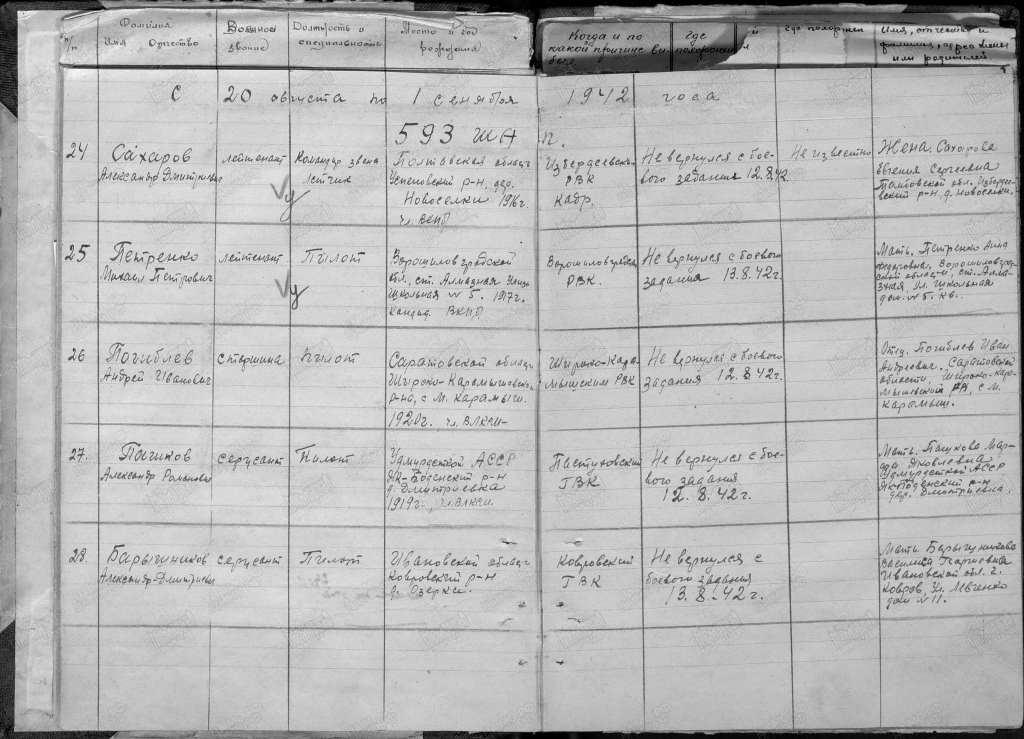 № п/п
Фамилия Имя, Отчество
Военное звание
Должность и специальность
Место и год рождения
Когда и по какой причине выбыл
Где похоронен
где похоронен
Имя, отчество и фамилия, адрес жены или родителей
С 20 августа по 1 сентября 1942 года
593 ШАП.
24
Сахаров
Александр Дмитриевич
лейтенант
Командир звена
Летчик
Полтавская область
р-н, дер.
Новоселки 1916г.
чл. ВКПб
РВК
Кадр.
Не вернулся с бое-
вого задания 12.8.42.
Не известно
Жена. Сахарова
Евгения Сергеевна
р-н, д. Новоселки.
25
Петренко
Михаил Петрович
лейтенант
Пилот
Ворошиловградской
обл, ст. Алмазная улица
Школьная № 5. 1917г.
кандид. ВКПб
РВК.
Не вернулся с боевого
задания 13.8.42г.
Мать, Петренко Анна
Ворошиловград-
ской области, ст. Алма-
зная ул. Школьная
дом. № 5. кв.
26
Погиблев
Андрей Иванович
старшина
Пилот
Саратовской област
Широко-Карамышевск
р-на, с М. Карамыш.
1920г. чл. ВЛКСМ
Широко-Кара-
мышским РВК
Не вернулся с боевого
задания 12.8.42г.
Отец. Погиблев Иван
Андреевич. Саратовской
области, Широко-кара-
мышевский РН, с М.
Карамыш.
27.
Пашков
Александр Романович
сержант
Пилот
Удмурдсткой АССР
р-н
д. Дмитриевка
1919г., чл. ВЛКСМ.
Пастуховский
ГВК
Не вернулся с бое-
вого задания
12.8.42г.
Мать. Пашкова Мар-
Яковлевна
Удмурдсткой АССР
р-н
дер. Дмитриевка.
28.
Барычников
Александр Дмитриевич
сержант
Пилот
Ивановской област
Ковровский р-н
д. Озерки.
Ковровский
ГВК
Не вернулся с
боевого задания
13.8.42г.
Мать Барычникова
Ивановской обл. г.
Ковров, ул. Левченко
дом № 11.